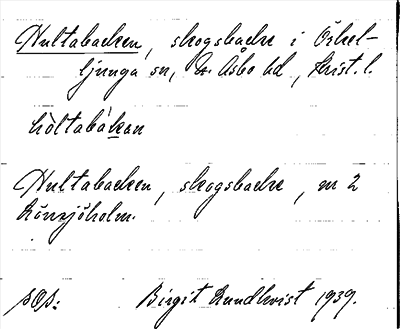 Hultabacken, skogsbacke i Örkel-
ljunga sn, N. Åsbo hd, Krist. l.
hòltabákan
Hultabacken, skogsbacke, m 2
Rönsjöholm.
Birgit Rundkvist 1939.